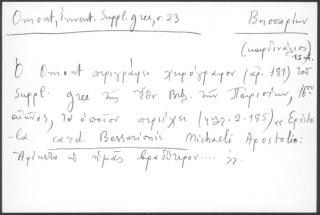 Omont, Invent. Suppl. grec, σ. 23 Βησσαρίων
(καρδινάλιος)
15 αἰ.
Ὁ Omont περιγράφει χειρόγραφον (ἀρ. 181) τοῦ
Suppl. grec τῆς Ἐθν. Βιβ. τῶν Παρισίων, 16ου
αἰῶνος, τὸ ὁποῖον περιέχει « Episto-
la card. Bessarionis Michaeli Apostolio:
Ἀφίκετο ὡς ἡμᾶς βραδύτερον.... ».